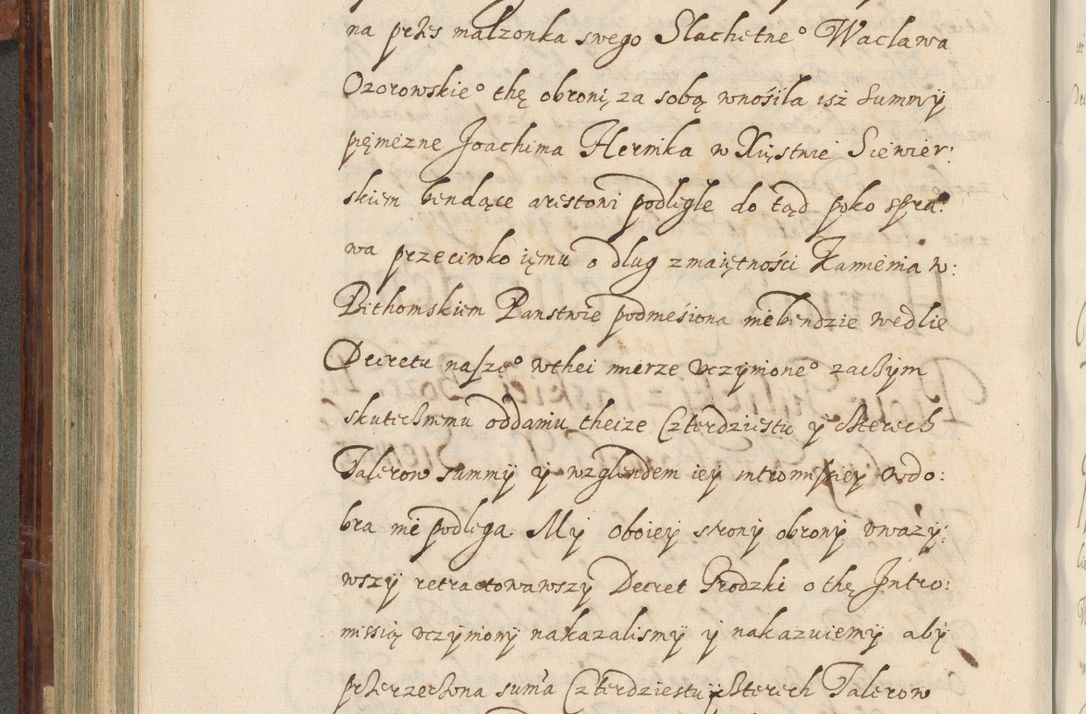 na przes malzonka swego Slachetne° Waclawa
Ozorowskie° thę obronę za sobą wnośiła isz Summy
pięniężne Joachima Hernika w Xięstwie Siewier:
skiem bendące arestowi podlegle do tąd poko spra:
wa przeciwko ięmu o dlug z maiętności Kamienia w:
Bithomskiem Panstwie podnieśiona niebendzie wedlie
Decretu nasze° wthei mierze uczynione° zaczym
skutecznemu oddaniu theize Czterdziestu y czterech
Talerow summy y wzglendem iey intromissiey w do:
bra nie podlega. My oboiey strony obrony uwazy:
wszy retractowawszy Decret Grodzki o thę Intro:
missią uczyniony nakazalismy y nakazuiemy aby
przerzeczona suma Czterdziestu y czterech Talerow